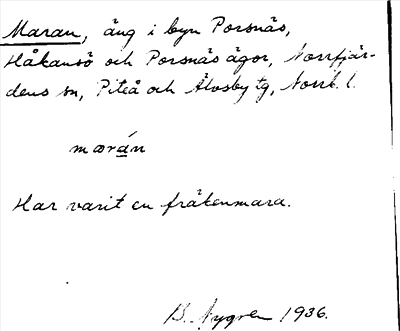 Maran, äng i byn Porsnäs,
Håkansö och Porsnäs ägor, Norrfjär-
dens sn, Piteå och Älvsby tg, Norrb. l.
marán
Har varit en fräkenmara.
B. Nygren 1936.